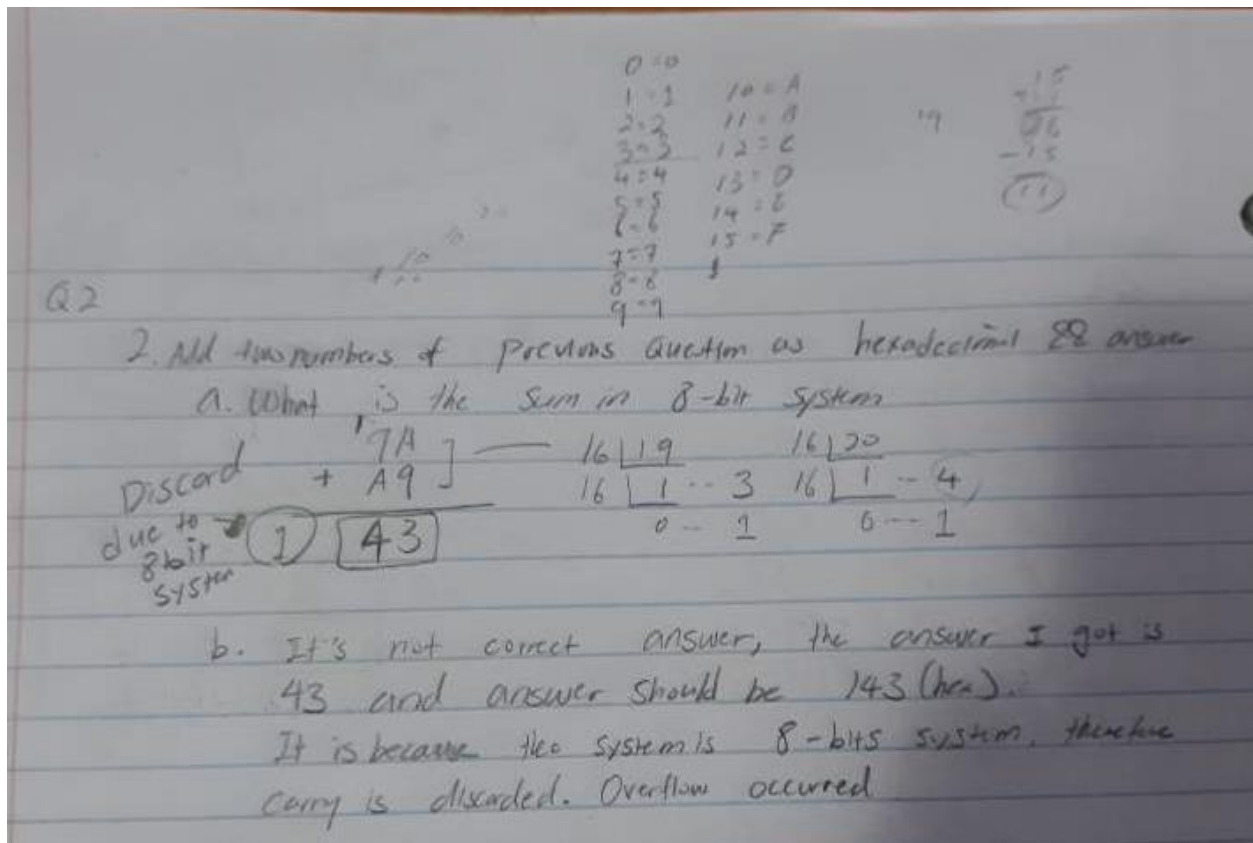 0=0
1=1 10=A
2=2 11=B
3=3 12=C
4=4 13=D
5=5 14=E
6=6 15=F
7=7
8=8
9=9
19
15
26
-15
11
Q2
2. Add two numbers of previous Question as hexadecimal answer
a. What is the sum in 8-bit system
1
9A
+ A9
1 43
Discard
due to
8bit
system
16 19 16 20
16 1 -- 3 16 1 -- 4
0 -- 1 0 -- 1
b. It's not correct answer, the answer I got is
43 and answer should be 143 (hex).
It is because the system is 8-bits system, therefore
carry is discarded. Overflow occurred